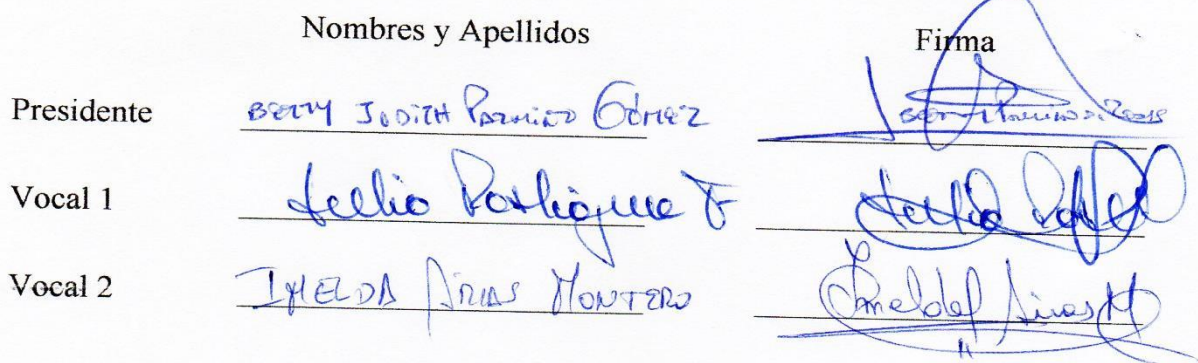 Nombres y Apellidos Firma
Presidente BETTY JUDITH PAZMIÑO GÓMEZ
Vocal 1 Tullio Rodrigue F
Vocal 2 IMELDA ARIAS MONTERO Imelda Arias M